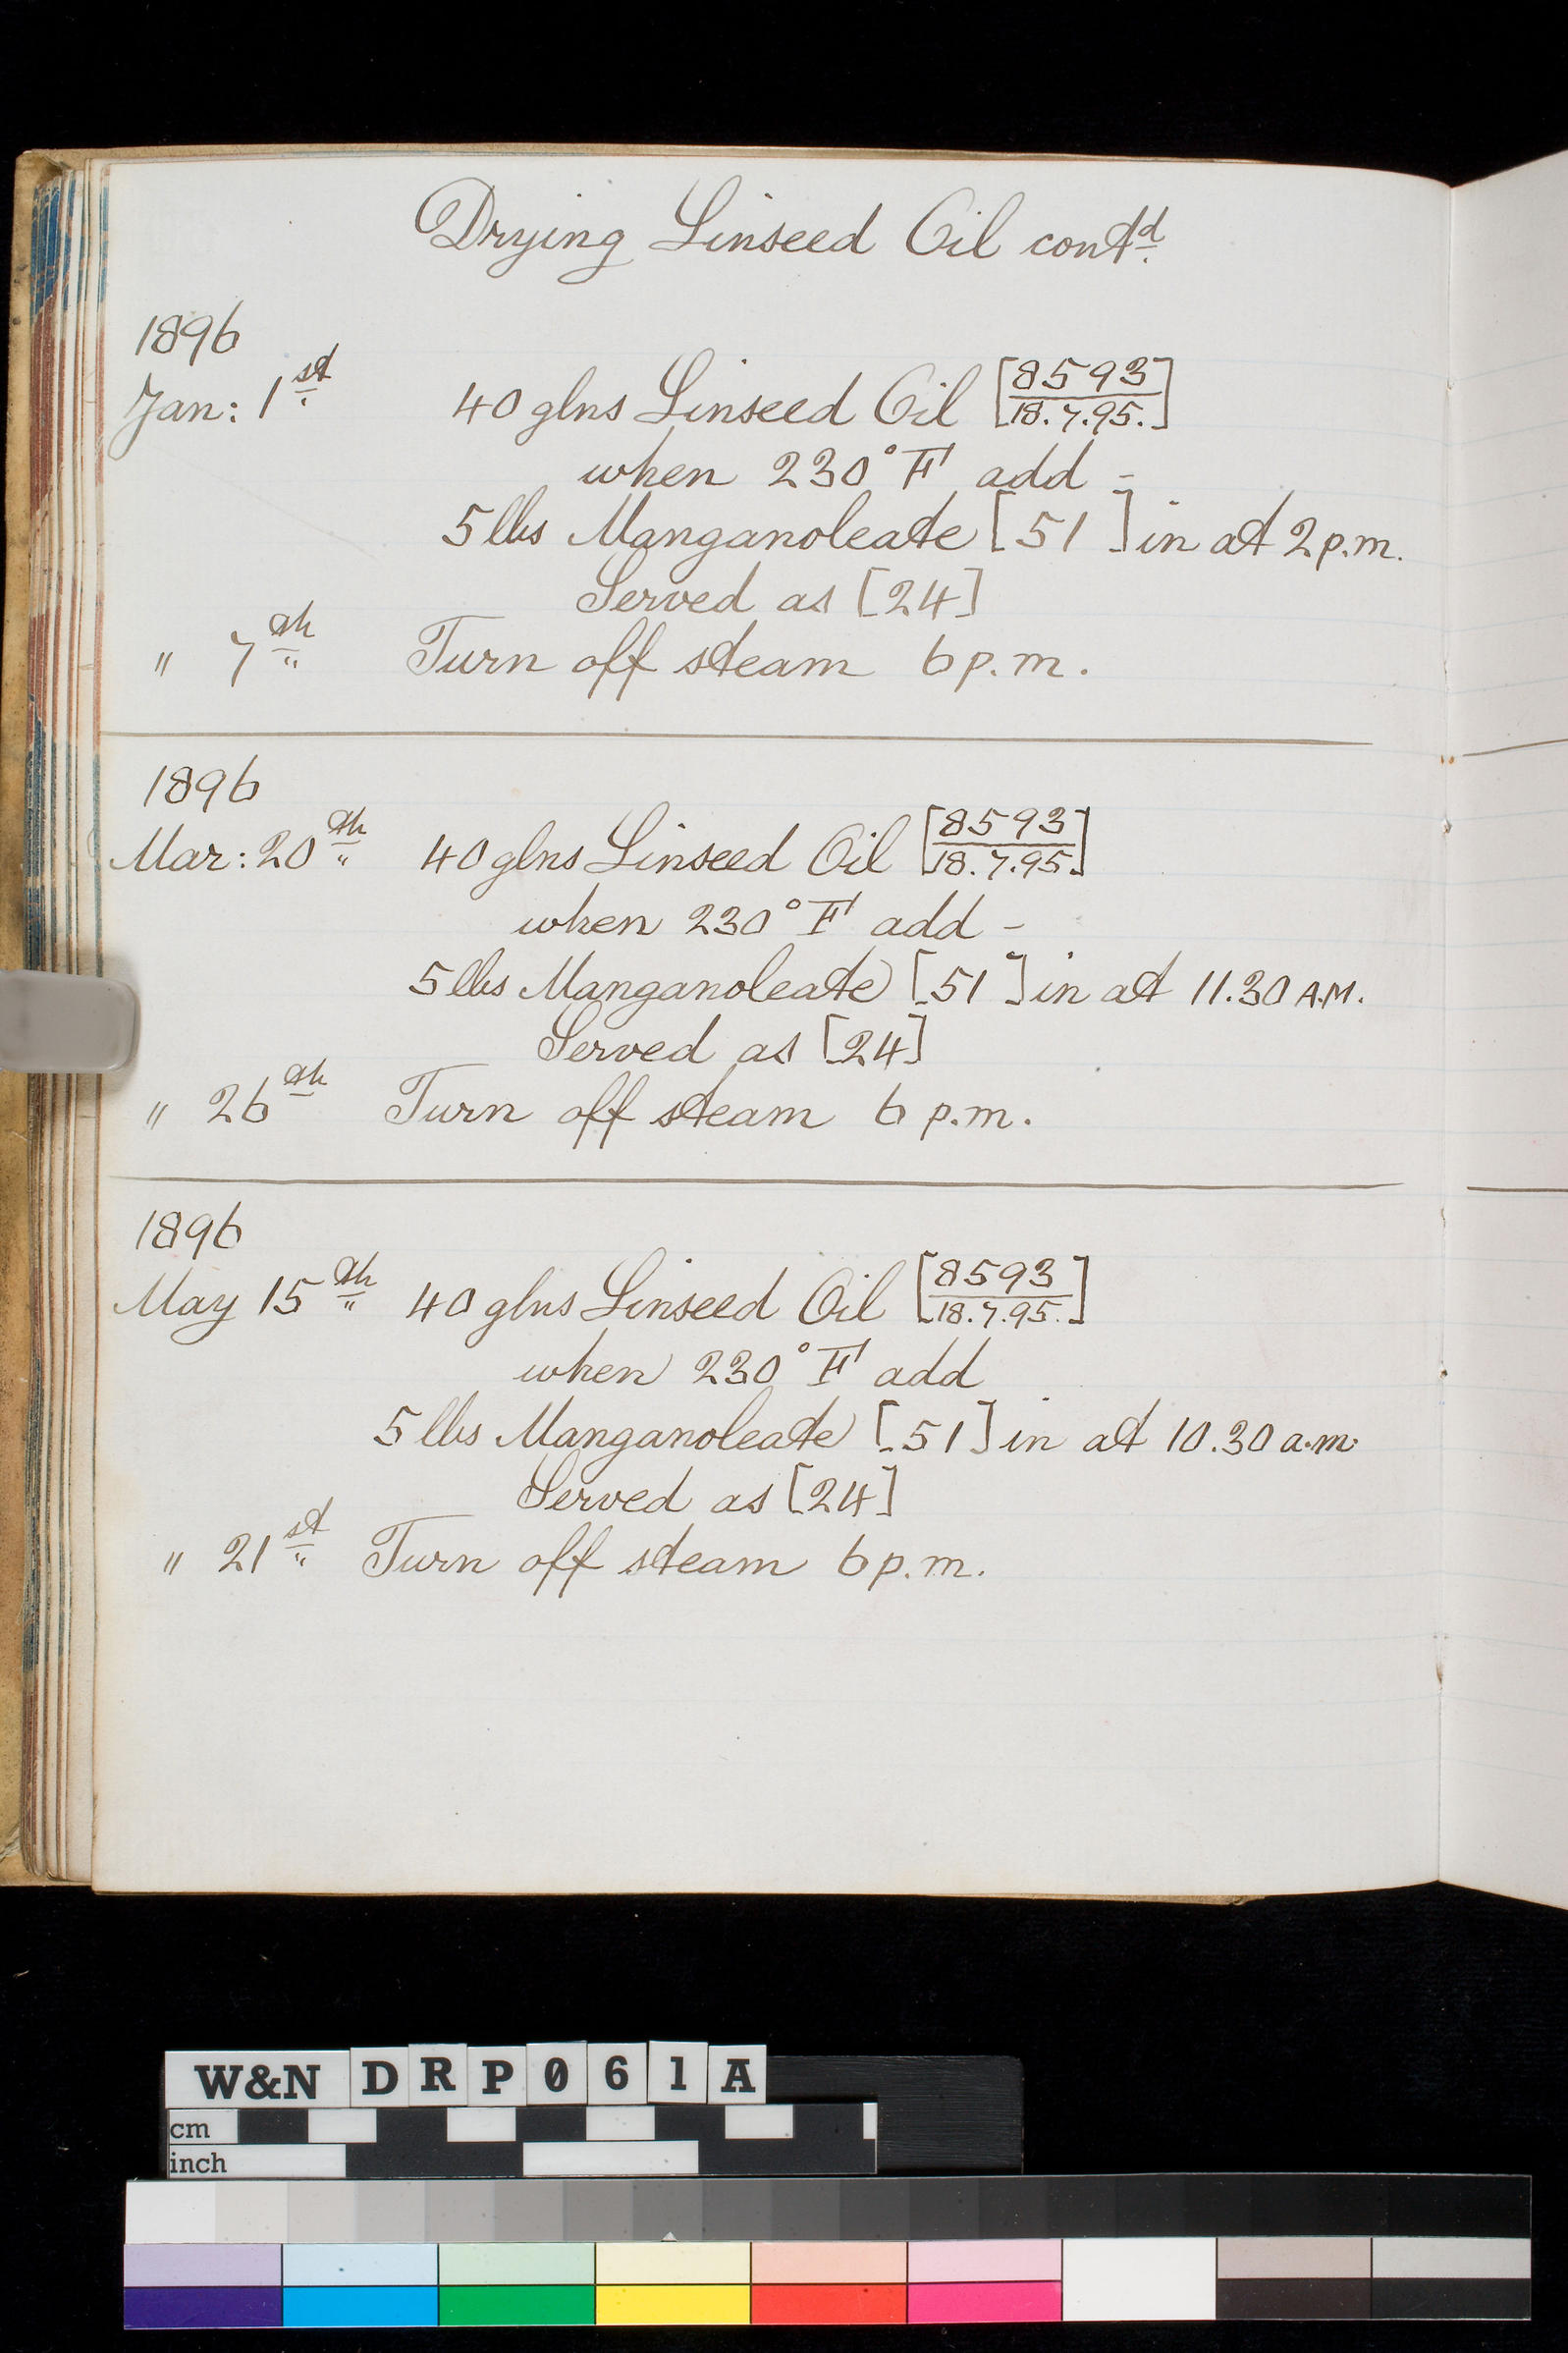 Drying Linseed Oil contd.
1896
Jan: 1st 40 glns Linseed Oil [8593/18.7.95.]
when 230°F add -
5 lbs Manganoleate [51] in at 2 p.m.
Served as [24]
" 7th Turn off steam 6 p.m.
1896
Mar: 20th 40 glns Linseed Oil [8593/18.7.95.]
when 230°F add -
5 lbs Manganoleate [51] in at 11.30 A.M.
Served as [24]
" 26th Turn off steam 6 p.m.
1896
May 15th 40 glns Linseed Oil [8593/18.7.95.]
when 230°F add
5 lbs Manganoleate [51] in at 10.30 a.m.
Served as [24]
" 21st Turn off steam 6 p.m.
W&N DRP061A
cm
inch